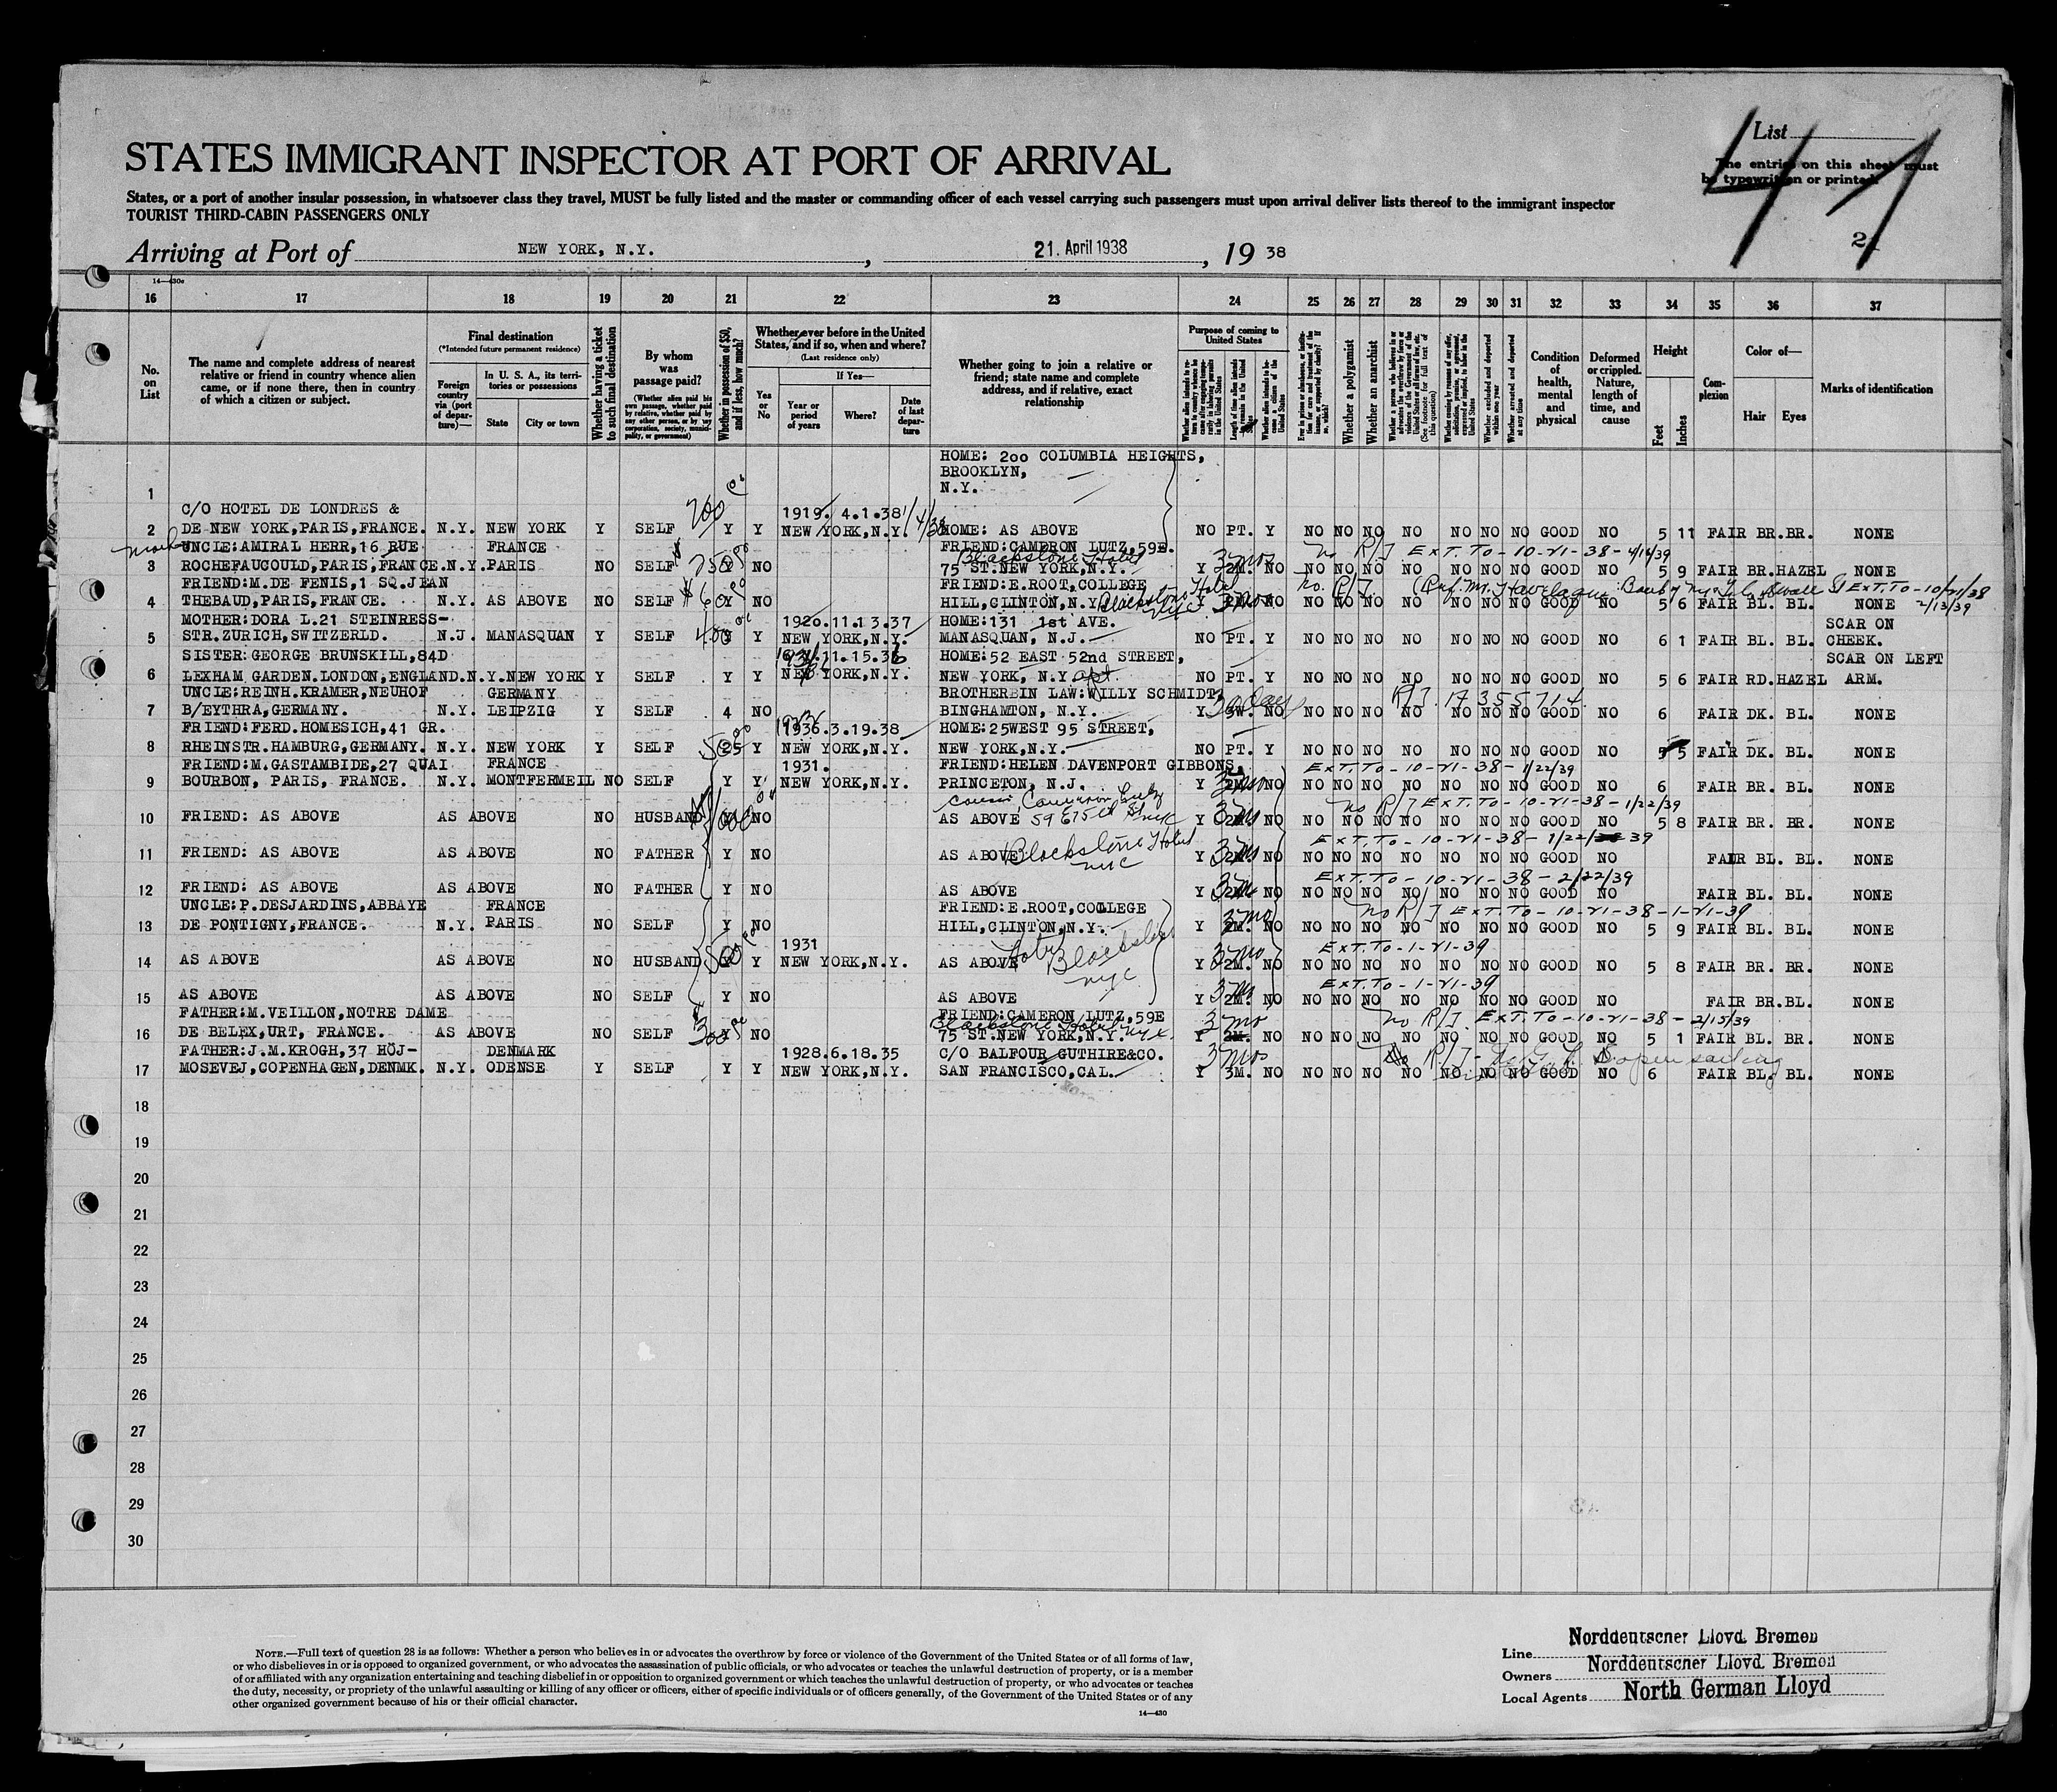 List
The entries on this sheet must
be typewritten or printed.
47
2
STATES IMMIGRANT INSPECTOR AT PORT OF ARRIVAL
States, or a port of another insular possession, in whatsoever class they travel, MUST be fully listed and the master or commanding officer of each vessel carrying such passengers must upon arrival deliver lists thereof to the immigrant inspector
TOURIST THIRD-CABIN PASSENGERS ONLY
Arriving at Port of NEW YORK, N.Y., 21. April 1938, 19 38
14—430c
16 17 18 19 20 21 22 23 24 25 26 27 28 29 30 31 32 33 34 35 36 37
No. on List
The name and complete address of nearest relative or friend in country whence alien came, or if none there, then in country of which a citizen or subject.
Final destination
(*Intended future permanent residence)
Foreign country via (port of departure)—
In U. S. A., its territories or possessions
State
City or town
Whether having a ticket to such final destination
By whom was passage paid?
(Whether alien paid his own passage, whether paid by relative, whether paid by any other person, or by any corporation, society, municipality, or government)
Whether in possession of $50, and if less, how much?
Whether ever before in the United States, and if so, when and where?
(Last residence only)
Yes or No
If Yes—
Year or period of years
Where?
Date of last departure
Whether going to join a relative or friend; state name and complete address, and if relative, exact relationship
Purpose of coming to United States
Whether a polygamist
Whether an anarchist
Condition of health, mental and physical
Deformed or crippled. Nature, length of time, and cause
Height
Feet
Inches
Complexion
Color of—
Hair
Eyes
Marks of identification
HOME: 200 COLUMBIA HEIGHTS,
BROOKLYN,
1 N.Y.
C/O HOTEL DE LONDRES & 1919. 4.1.38
2 DE NEW YORK,PARIS,FRANCE. N.Y. NEW YORK Y SELF 200 Y Y NEW YORK,N.Y. HOME: AS ABOVE NO PT. Y NO NO NO NO NO NO NO GOOD NO 5 11 FAIR BR.BR. NONE
UNCLE:AMIRAL HERR,16 RUE FRANCE FRIEND:CAMERON LUTZ,59E. Blackstone Hotel 3 mos No R/J EXT. TO-10-21-38-4/14/39
3 ROCHEFAUCOULD,PARIS,FRANCE.N.Y.PARIS NO SELF Y NO 75 ST.NEW YORK,N.Y. Y 2M. NO NO NO NO NO NO NO NO GOOD NO 5 9 FAIR BR.HAZEL NONE
FRIEND:M.DE FENIS,1 SQ.JEAN FRIEND:E.ROOT,COLLEGE No. R/J EXT.TO-10/21/38
4 THEBAUD,PARIS,FRANCE. N.Y. AS ABOVE NO SELF Y NO HILL,CLINTON,N.Y. Blackstone Hotel NYC 3 mos NO NO NO NO NO NO NO NO GOOD NO 5 6 FAIR BL. BL. NONE 2/13/39
MOTHER:DORA L.21 STEINRESS- 1920.11.13.37 HOME:131 1st AVE. SCAR ON
5 STR.ZURICH,SWITZERLD. N.J. MANASQUAN Y SELF Y Y NEW YORK,N.Y. MANASQUAN, N.J. NO PT. Y NO NO NO NO NO NO NO GOOD NO 6 1 FAIR BL. BL. CHEEK.
SISTER:GEORGE BRUNSKILL,84D 11.15.36 HOME:52 EAST 52nd STREET, SCAR ON LEFT
6 LEXHAM GARDEN.LONDON,ENGLAND.N.Y.NEW YORK Y SELF Y Y NEW YORK,N.Y. NEW YORK, N.Y. apt. NO PT. Y NO NO NO NO NO NO NO GOOD NO 5 6 FAIR RD.HAZEL ARM.
UNCLE:REINH.KRAMER,NEUHOF GERMANY BROTHERBIN LAW:WILLY SCHMIDT, 30 days R/J. 1735571 4
7 B/EYTHRA,GERMANY. N.Y. LEIPZIG Y SELF 4 NO BINGHAMTON, N.Y. Y NO NO NO NO NO NO NO NO GOOD NO 6 FAIR DK. BL. NONE
FRIEND:FERD.HOMESICH,41 GR. 1936.3.19.38 HOME:25WEST 95 STREET,
8 RHEINSTR.HAMBURG,GERMANY. N.Y. NEW YORK Y SELF 25 Y NEW YORK,N.Y. NEW YORK,N.Y. NO PT. Y NO NO NO NO NO NO NO GOOD NO 5 5 FAIR DK. BL. NONE
FRIEND:M.GASTAMBIDE,27 QUAI FRANCE 1931. FRIEND:HELEN DAVENPORT GIBBONS, EXT.TO-10-21-38-1/22/39
9 BOURBON, PARIS, FRANCE. N.Y. MONTFERMEIL NO SELF Y Y NEW YORK,N.Y. PRINCETON, N.J. Y 2M. NO NO NO NO NO NO NO NO GOOD NO 6 FAIR BR. BL. NONE
no R/J EXT.TO-10-21-38-1/22/39
10 FRIEND: AS ABOVE AS ABOVE NO HUSBAND Y NO AS ABOVE 59 E 75th St Y 2M. NO NO NO NO NO NO NO NO GOOD NO 5 8 FAIR BR. BR. NONE
EXT.TO-10-21-38-1/22/39
11 FRIEND: AS ABOVE AS ABOVE NO FATHER Y NO AS ABOVE Blackstone Hotel nyc Y 2M. NO NO NO NO NO NO NO NO GOOD NO FAIR BL. BL. NONE
EXT.TO-10-21-38-2/22/39
12 FRIEND: AS ABOVE AS ABOVE NO FATHER Y NO AS ABOVE Y 2M. NO NO NO NO NO NO NO NO GOOD NO FAIR BL. BL. NONE
UNCLE:P.DESJARDINS,ABBAYE FRANCE FRIEND:E.ROOT,COLLEGE no R/J EXT.TO-10-21-38-1-21-39
13 DE PONTIGNY,FRANCE. N.Y. PARIS NO SELF Y NO HILL,CLINTON,N.Y. Y 2M. NO NO NO NO NO NO NO NO GOOD NO 5 9 FAIR BL. BL. NONE
1931 EXT.TO-1-21-39
14 AS ABOVE AS ABOVE NO HUSBAND 500 Y NEW YORK,N.Y. AS ABOVE Hotel Blackstone nyc Y 2M. NO NO NO NO NO NO NO NO GOOD NO 5 8 FAIR BR. BR. NONE
EXT.TO-1-21-39
15 AS ABOVE AS ABOVE NO SELF Y NO AS ABOVE Y 2M. NO NO NO NO NO NO NO NO GOOD NO FAIR BR.BL. NONE
FATHER:M.VEILLON,NOTRE DAME FRIEND:CAMERON LUTZ,59E Blackstone Hotel nyc. 3 mo no R/J EXT.TO-10-21-38-2/15/39
16 DE BELEX,URT, FRANCE. AS ABOVE NO SELF 300 Y NO 75 ST.NEW YORK,N.Y. Y 2M. NO NO NO NO NO NO NO NO GOOD NO 5 1 FAIR BL. BR. NONE
FATHER:J.M.KROGH,37 HÖJ- DENMARK 1928.6.18.35 C/O BALFOUR GUTHIRE&CO. 3 mos No R/J
17 MOSEVEJ,COPENHAGEN,DENMK. N.Y. ODENSE Y SELF Y Y NEW YORK,N.Y. SAN FRANCISCO,CAL. Y 3M. NO NO NO NO NO NO NO NO GOOD NO 6 FAIR BL. BL. NONE
18
19
20
21
22
23
24
25
26
27
28
29
30
NOTE.—Full text of question 28 is as follows: Whether a person who believes in or advocates the overthrow by force or violence of the Government of the United States or of all forms of law,
or who disbelieves in or is opposed to organized government, or who advocates the assassination of public officials, or who advocates or teaches the unlawful destruction of property, or is a member
of or affiliated with any organization entertaining and teaching disbelief in or opposition to organized government or which teaches the unlawful destruction of property, or who advocates or teaches
the duty, necessity, or propriety of the unlawful assaulting or killing of any officer or officers, either of specific individuals or of officers generally, of the Government of the United States or of any
other organized government because of his or their official character.
14—430
Line Norddeutscher Lloyd Bremen
Owners Norddeutscher Lloyd Bremen
Local Agents North German Lloyd